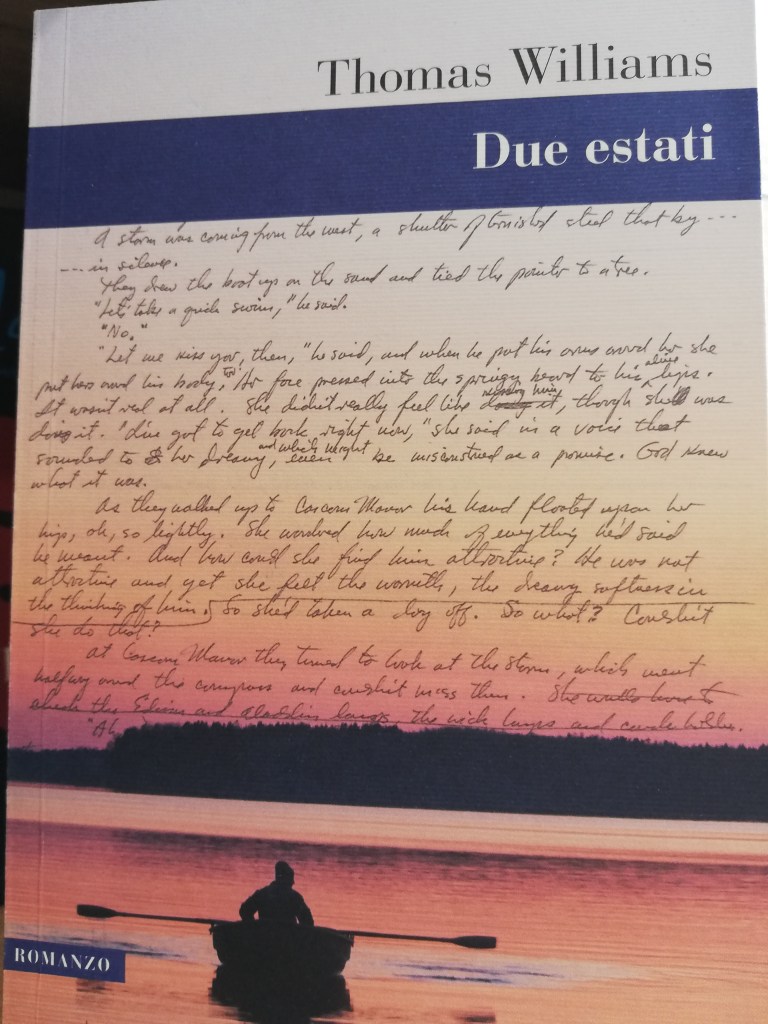 Thomas Williams
Due estati
A storm was coming from the west, a shutter of tarnished steel that by ---
--- in silence.
They drew the boat up on the sand and tied the painter to a tree.
"Let's take a quick swim," he said.
"No."
"Let me kiss you, then," he said, and when he put his arms around her she
put hers around his body, too. Her face pressed into the springy beard to his alive lips.
It wasn't real at all. She didn't really feel like it, though she was
doing it. "I've got to get back right now," she said in a voice that
sounded to her dreamy, and which might be misconstrued as a promise. God knew
what it was.
As they walked up to Cascom Manor his hand floated upon her
hip, oh, so lightly. She wondered how much of everything he'd said
he meant. And how could she find him attractive? He was not
attractive and yet she felt the warmth, the dreamy softness in
the thinking of him. So she'd taken a day off. So what? Couldn't
she do that?
At Cascom Manor they turned to look at the storm, which went
halfway around the compass and couldn't miss them. She would have to
check the Edison and Aladdin lamps, the wick lamps and candle holders.
"Ah
ROMANZO